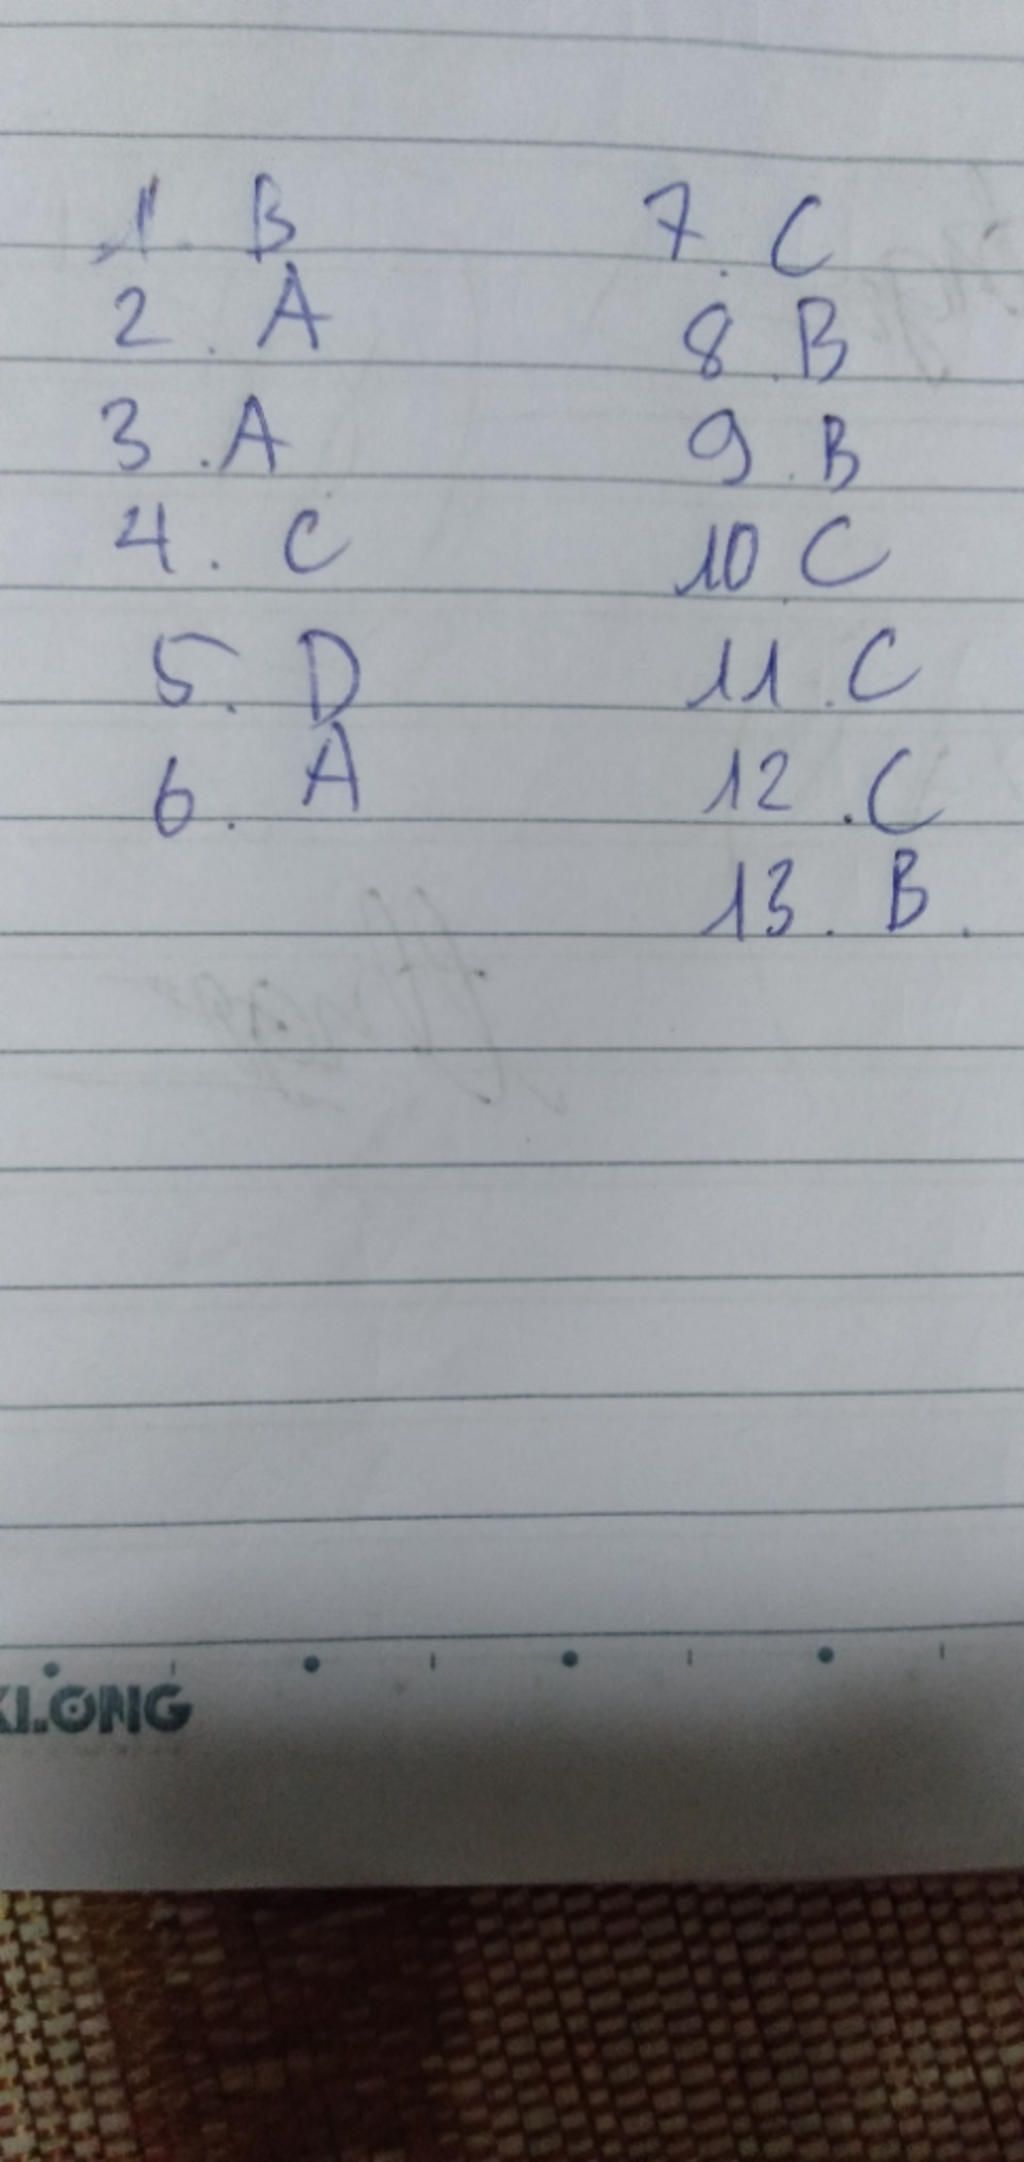 1. B
2. A
3. A
4. C
5. D
6. A
7. C
8. B
9. B
10. C
11. C
12. C
13. B.
KLONG